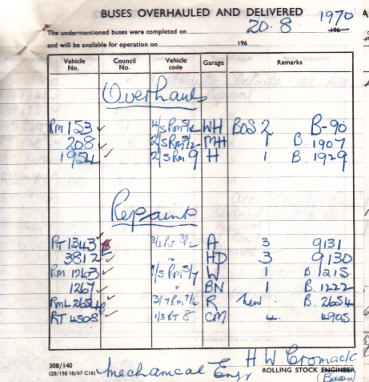 BUSES OVERHAULED AND DELIVERED
The undermentioned buses were completed on 20.8 1970
and will be available for operation on 196
Vehicle No. Council No. Vehicle code Garage Remarks
Overhauls
RM 153 ✓ WH BOS 2 B-90
208 ✓ MH 1 B. 1907
1954 ✓ 2/5 RM 9 H 1 B. 1929
Repaints
RT 1343 3/2 RT 3/2 A 3 9131
3812 ✓ " HD 3 9130
RM 1263 ✓ W 1 B 1215
1267 ✓ " BN 1 B. 1222
RML 2654 ✓ R New . B. 2654
RT 4508 ✓ 1/3 RT 8 CM 4. 4905
308/140
(20/150 10/67 C16)
Mechanical Engr H W Cromack
ROLLING STOCK ENGINEER
(Buses)